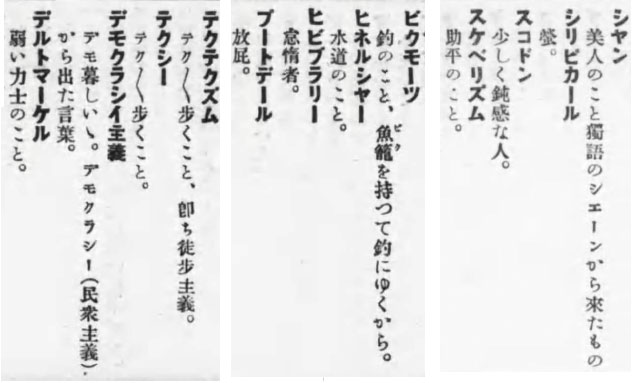 シヤン
美人のこと獨語のシエーンから來たもの
シリピカール
螢。
スコドン
少しく鈍感な人。
スケベリズム
助平のこと。
ビクモーツ
釣のこと、魚籠を持つて釣にゆくから。
ビク
ヒネルシャー
水道のこと。
ヒビブラリー
怠惰者。
ブートデール
放屁。
テクテクズム
テク〳〵歩くこと、卽ち徒歩主義。
テクシー
テク〳〵歩くこと。
デモクラシイ主義
デモ暮しいゝ。デモクラシー(民衆主義)
から出た言葉。
デルトマーケル
弱い力士のこと。